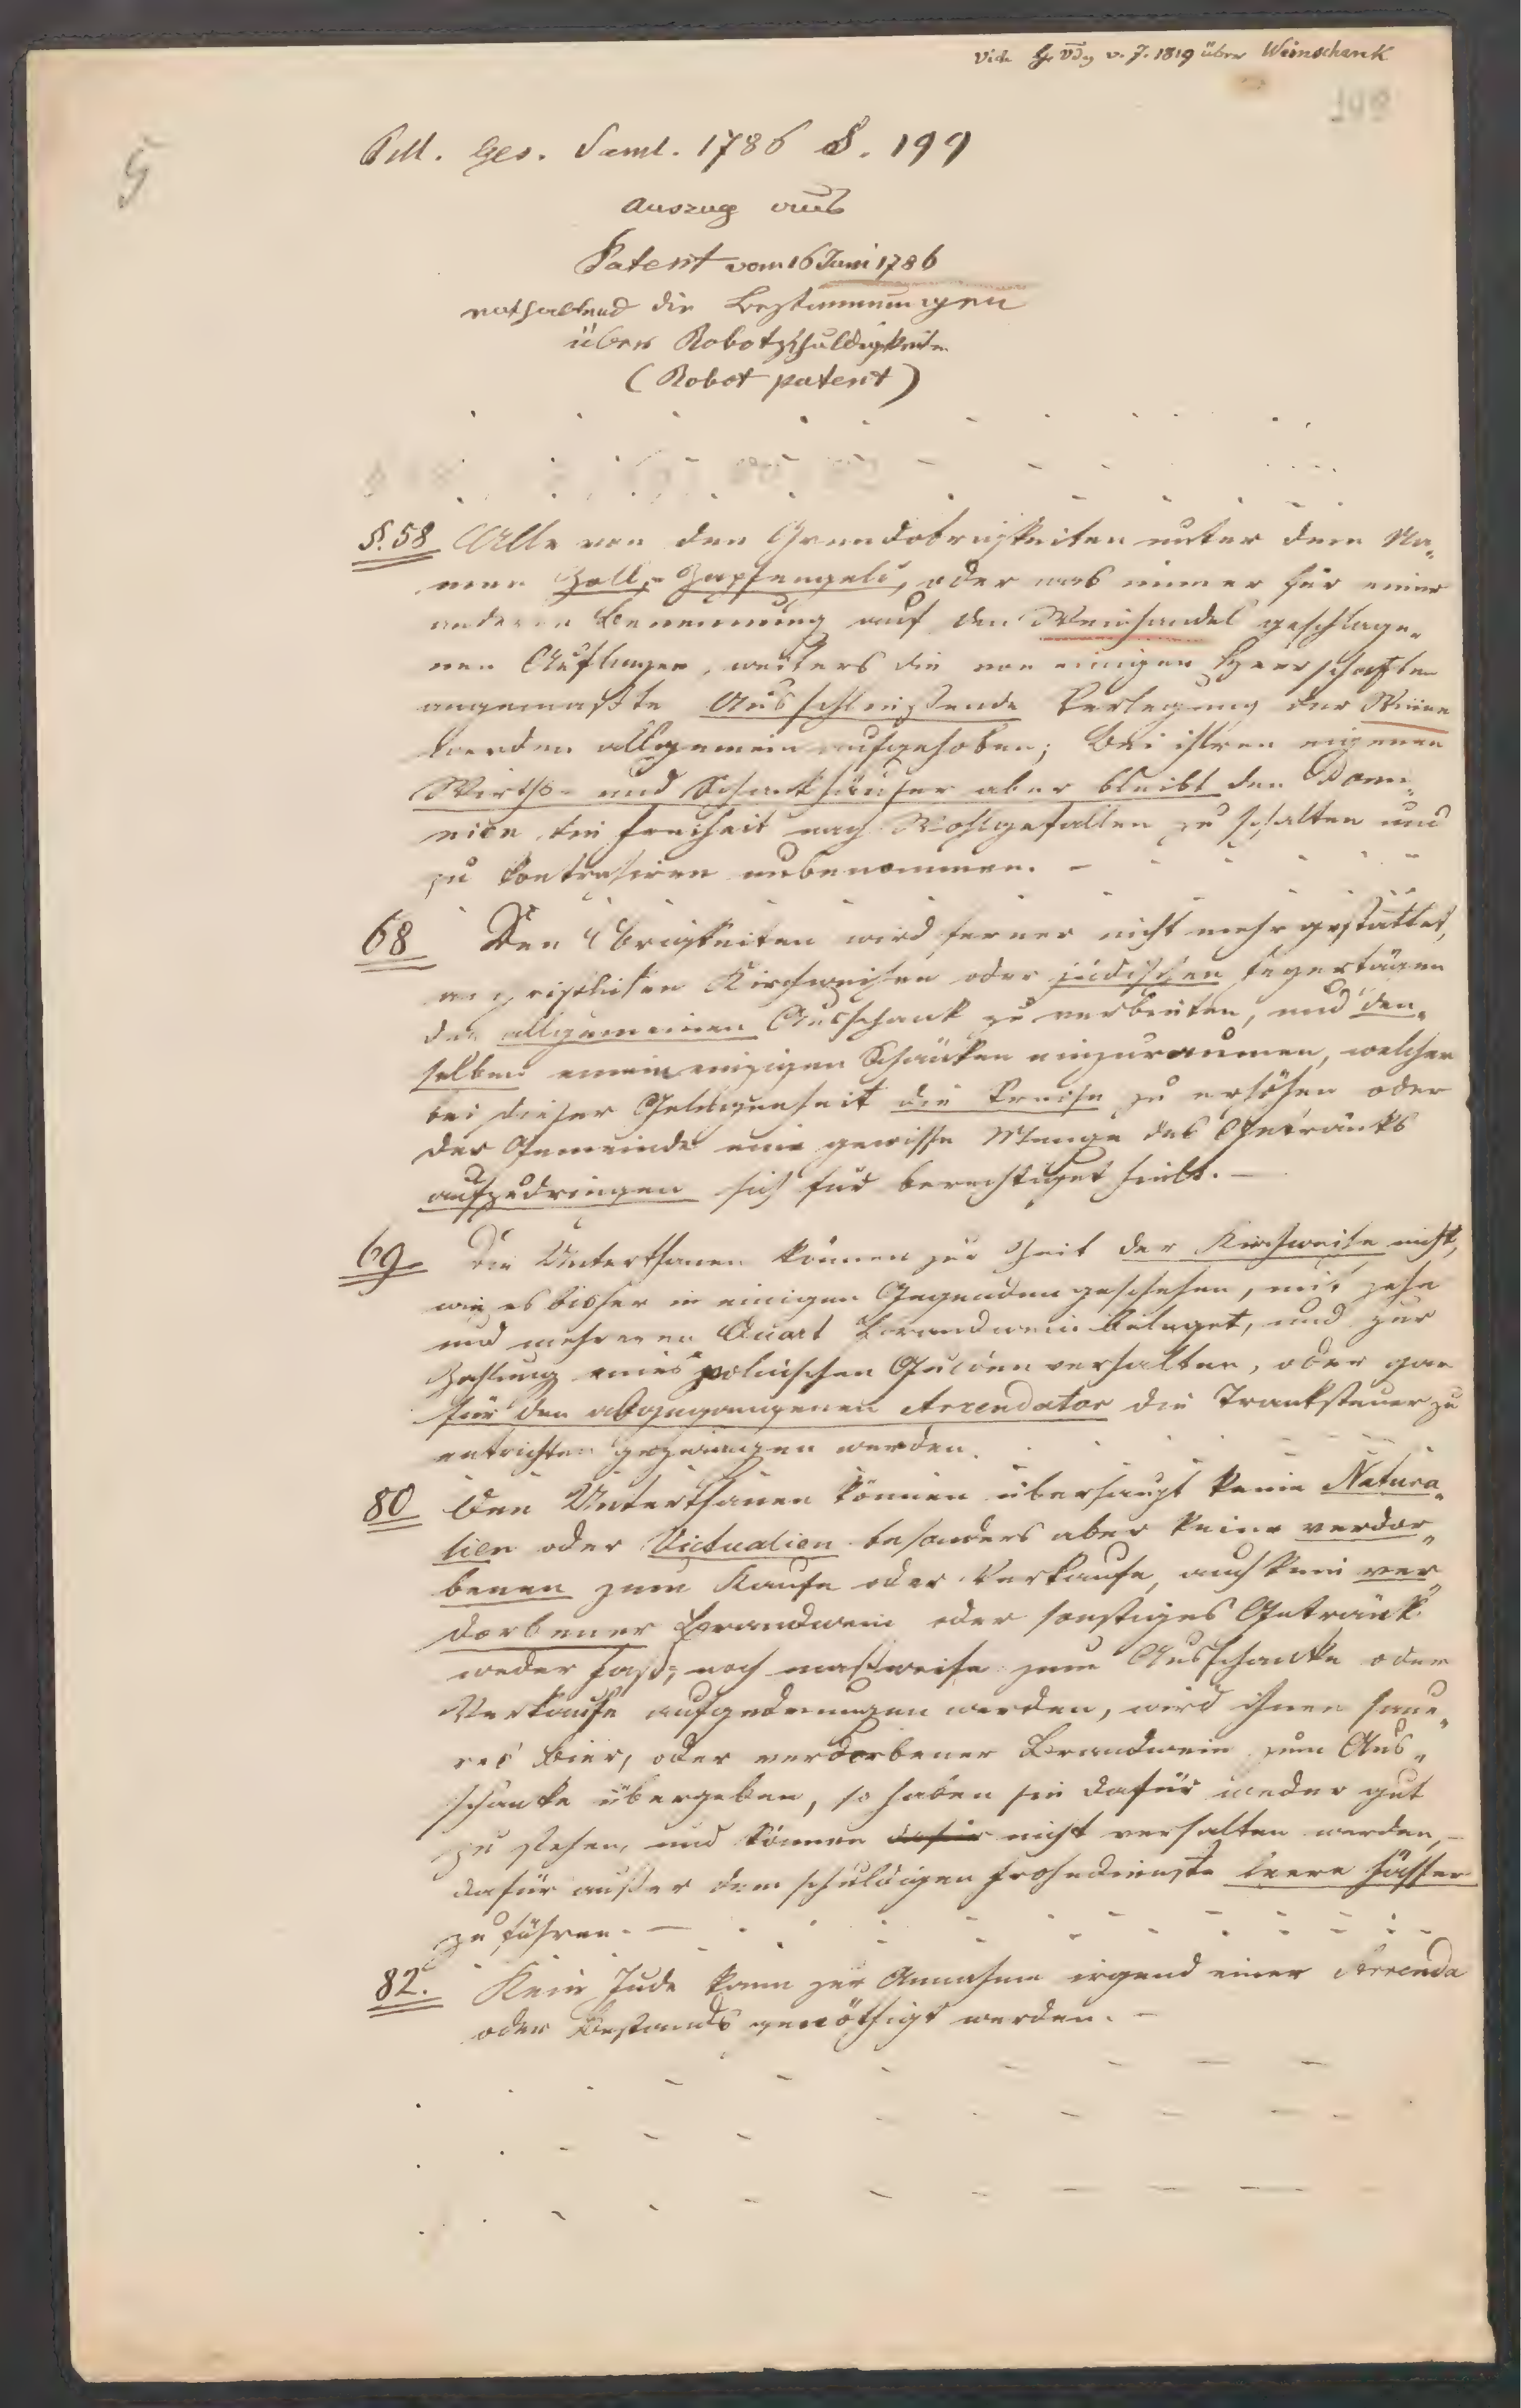 Vide v. J. 1819 über Weinschank
5
Pill. Ges. Saml. 1786 S. 199
Auszug aus
Patent vom 16 Juni 1786
enthaltend die Bestimmungen
über Robothschuldigkeiten
(Robot patent)
§. 58 Alle von den Grundobrigkeiten unter dem Na„
men Zoll,- Zapfengeld, oder was immer für einer
anderen Benennung auf den Weinhandel geschlage„
nen Auflagen, weiters die von einigen Herrschaften
angemaßte Ausschließende Verlegung der Weine
werden allgemein aufgehoben; bei ihren eigenen
Wirths- und Schankhäuser aber bleibt den Domi„
nien die Freiheit nach Wohlgefallen zu schalten und
zu kontrahiren unbenommen. -
68 Den Obrigkeiten wird ferner nicht mehr gestattet,
an christlichen Kirchweihen oder jüdischen Feyertägen
den allgemeinen Ausschank zu verbieten, und den„
selben einem einzigen Schänken einzuraumen, welcher
bei dieser Gelegenheit die Preise zu erhöhen oder
der Gemeinde eine gewisse Menge des Getränks
aufzudringen sich für berechtiget hielt. -
69. Die Unterthanen können zur Zeit der Kirchweihe nicht,
wie es bisher in einigen Gegenden geschehen, mit zehn
und mehreren Quart Brandwein beleget, und zur
Zahlung eines polnischen Gulden verhalten, oder gar
für den abgegangenen Arrendator die Tranksteuer zu
entrichten gezwungen werden.
80 Den Unterthanen können überhaupt keine Natura„
lien oder Victualien besonders aber keine verdor„
benen zum Kaufe oder Verkaufe, auch kein ver„
dorbener Brandwein oder sonstiges Getränk
weder faß,- noch maßweise zum Ausschanke oder
Verkaufe aufgedrungen werden, wird ihnen saue„
res Bier, oder verdorbener Brandwein zum Aus„
schanke übergeben, so haben sie dafür weder gut
zu stehen, und können dafür nicht verhalten werden, -
dafür außer dem schuldigen Frohndienste leere Fässer
zu führen. -
82. Kein Jude kann zur Annahme irgend einer Arrenda
oder Bestands genöthigt werden. -